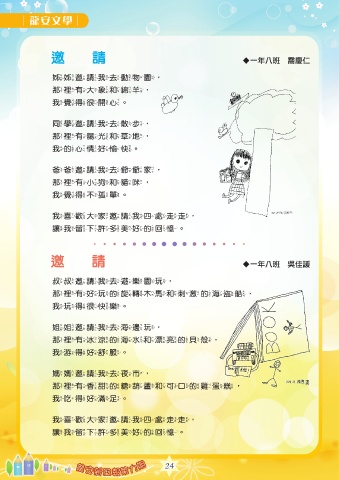 龍安文學
邀 請
◆一年八班 喬慶仁
姊姊邀請我去動物園，
那裡有大象和綿羊，
我覺得很開心。
同學邀請我去散步，
那裡有陽光和草地，
我的心情好愉快。
爸爸邀請我去爺爺家，
那裡有小狗和貓咪，
我覺得不孤單。
我喜歡大家邀請我四處走走，
讓我留下許多美好的回憶。
邀 請
◆一年八班 吳佳諼
叔叔邀請我去遊樂園玩，
那裡有好玩的旋轉木馬和刺激的海盜船，
我玩得很快樂。
姐姐邀請我去海邊玩，
那裡有冰涼的海水和漂亮的貝殼，
我游得好舒服。
媽媽邀請我去夜市，
那裡有香甜的糖葫蘆和可口的雞蛋糕，
我吃得好滿足。
我喜歡大家邀請我四處走走，
讓我留下許多美好的回憶。
BOOK
24